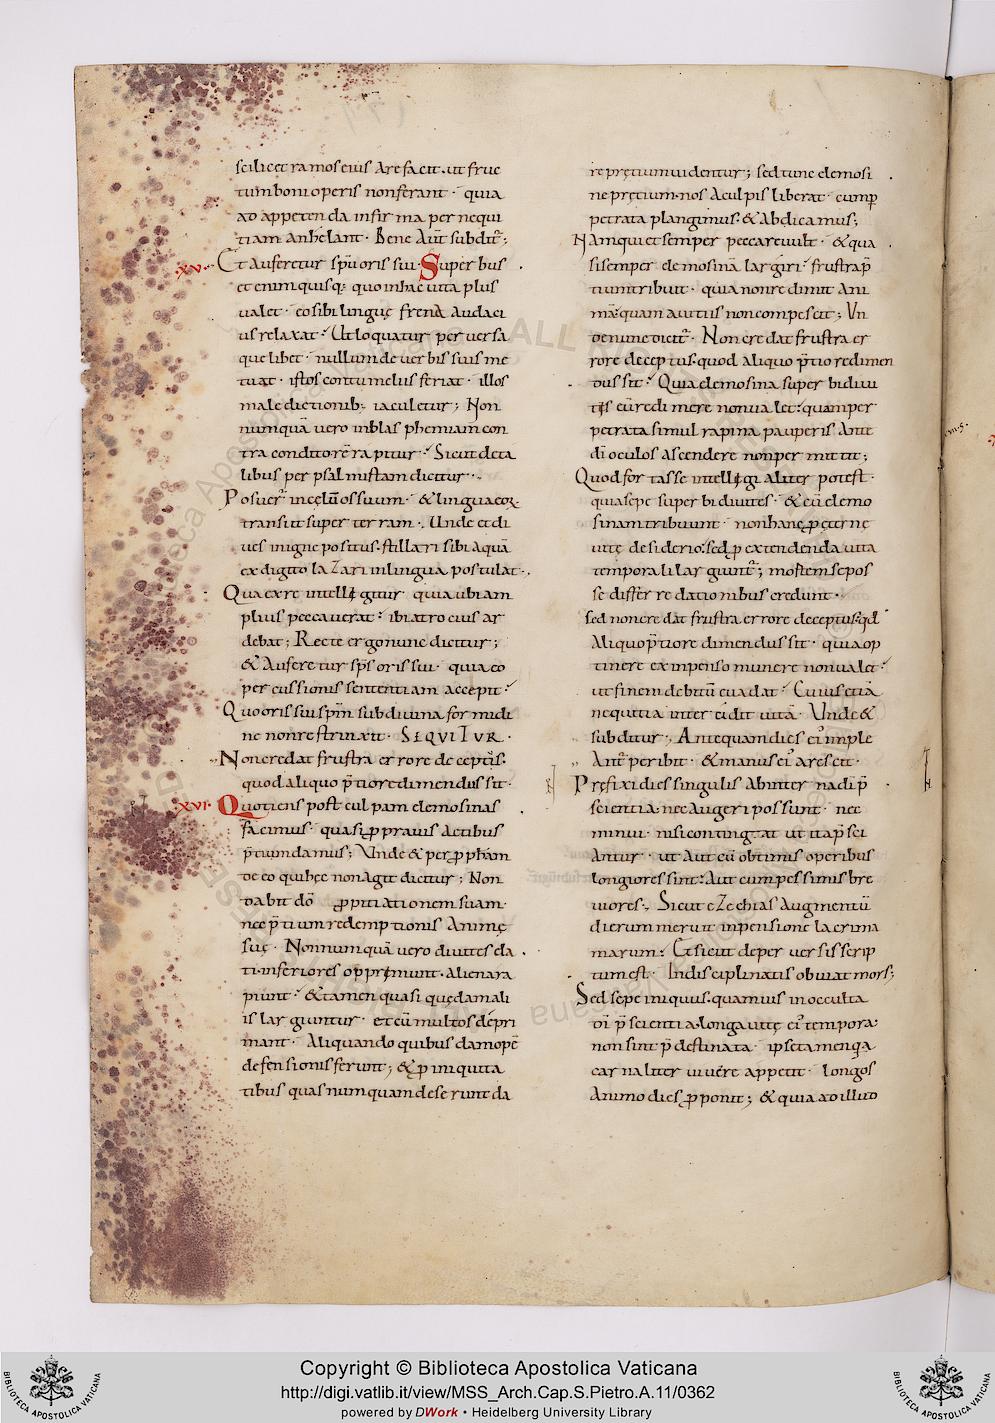 scilicet ramos eius arefacit. ut fruc
tum boni operis non ferant · quia
ad appetenda infirma per nequi
tiam anhelant · Bene aut̄ subdit᷑;
·xv· Et auferetur sp̄u oris sui · Superbus
et enim quisq; quo in hac uita plus
ualet · eo sibi linguę frena audaci
us relaxat · Ut loquatur peruersa
que libet · nullum de uerbis suis me
tuat · istos contumeliis feriat · illos
maledictionib; iaculetur; Non
numquā uero in blasphemiam con
tra conditorē raptur · Sicut de ta
libus per psalmistam dicitur ·
Posuer̄ in cęlū os suum · & lingua eoꝝ
transiit super terram · Unde et di
ues in igne positus · stillari sibi aquā
ex digito lazari in lingua postulat ·
Qua ex re intelligitur quia ubi am
plius peccauerat · ibi atrocius ar
debat; Recte ergo nunc dicitur;
& auferetur sp̄s oris sui · quia eo
percussionis sententiam accepit ·
Quo oris sui sp̄m sub diuina formidi
ne non restrinxit · SEQUITUR ·
Non credat frustra errore deceptus.
quod aliquo p̄tio redimendus sit ·
·xvi· Quotiens post culpam elemosinas
facimus · quasi ꝓ prauis actibus
p̄tium damus; Unde & per ꝓph̄am
de eo qui hęc non agit dicitur; Non
dabit dō ꝓpitiationem suam ·
nec p̄tium redemptionis animę
suę · Nonnumquā uero diuites da
ti · inferiores opprimunt · aliena ra
piunt · & tamen quasi quędam ali
is largiuntur · et cū multos depri
mant · Aliquando quibusdam opē
defensionis ferunt; & ꝓ iniquita
tibus quas numquam deserunt da
re pręcium uidentur; sed tunc elemosi
ne pręcium · nos a culpis liberat · cum ꝑ
petrata plangimus · & abdicamus;
Nam qui et semper peccare uult · & qua
si semper elemosinā largiri · frustra p̄
tium tribuit · quia non redimit ani
mā · quam a uitiis non compescit; Un
de nunc dicit᷑ · Non credat frustra er
rore deceptus · quod aliquo p̄tio redimen
dus sit · Quia elemosina superbi diui
tis eū redimere non ualet · quam per
petrata simul rapina pauperis ante
dī oculos ascendere non permittit;
Quod fortasse intelligi aliter potest ·
quia sepe superbi diuites · & cū elemo
sinam tribuunt · non hanc ꝓ ęterne
uitę desiderio · sed ꝓ extendenda uita
temporali largiunt᷑; mortem se pos
se differre dationibus credunt ·
sed non credat frustra errore deceptus · qd̄
aliquo p̄tio redimendus sit · quia op
tinere ex inpenso munere non ualet ·
ut finem debitū euadat · Cuius etiā
nequitia intercidit uitā · Unde &
subditur; Antequam dies ei᷒ imple
ant᷑ peribit · & manus ei᷒ arescet ·
Prefixi dies singulis ab interna dī p̄
scientia · nec augeri possunt · nec
minui · nisi contingat ut ita p̄sci
antur · ut aut cū obtimis operibus
longiores sint · Aut cum pessimis bre
uiores · Sicut ezechias augmentū
dierum meruit inpensione lacrima
rum; Et sicut de peruersis scrip
tum est · Indisciplinatis obuiat mors;
Sed sepe iniquus · quamuis in occulta
dī p̄scientia · longa uitę ei᷒ tempora ·
non sint p̄destinata · ipse tamen q̄a
carnaliter uiuere appetit · longos
animo dies ꝓponit; & quia ad illud
Copyright © Biblioteca Apostolica Vaticana
http://digi.vatlib.it/view/MSS_Arch.Cap.S.Pietro.A.11/0362
powered by DWork • Heidelberg University Library
BIBLIOTECA APOSTOLICA VATICANA
BIBLIOTECA APOSTOLICA VATICANA